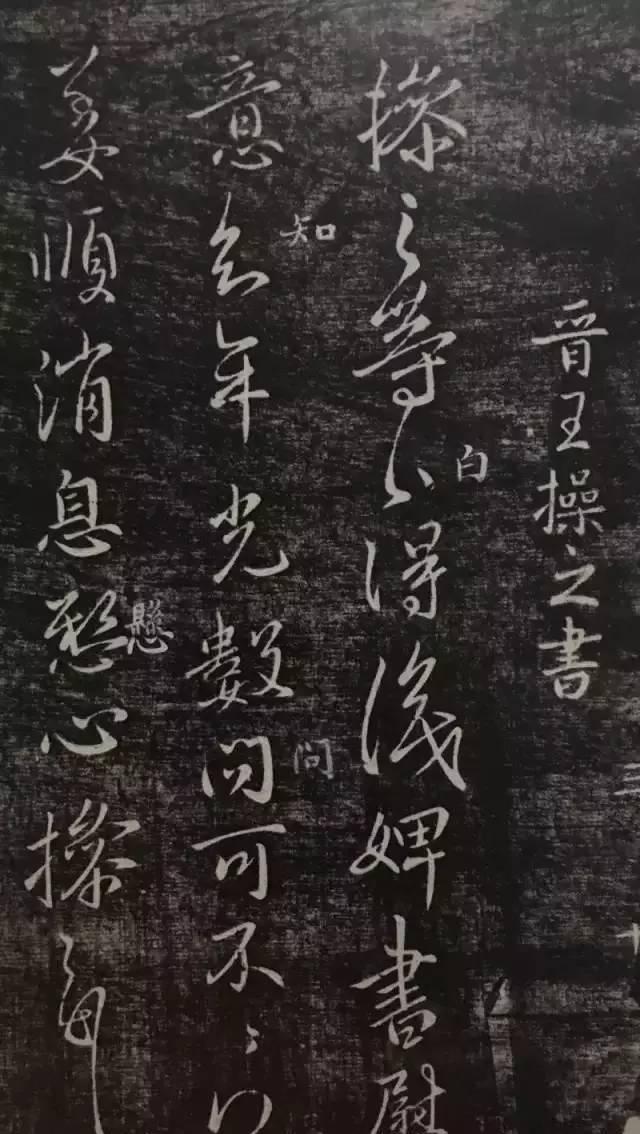 晉王操之書
白
操之等白得識婢書慰
知
問
意知年光數問可不
懸
姜順消息懸心操之